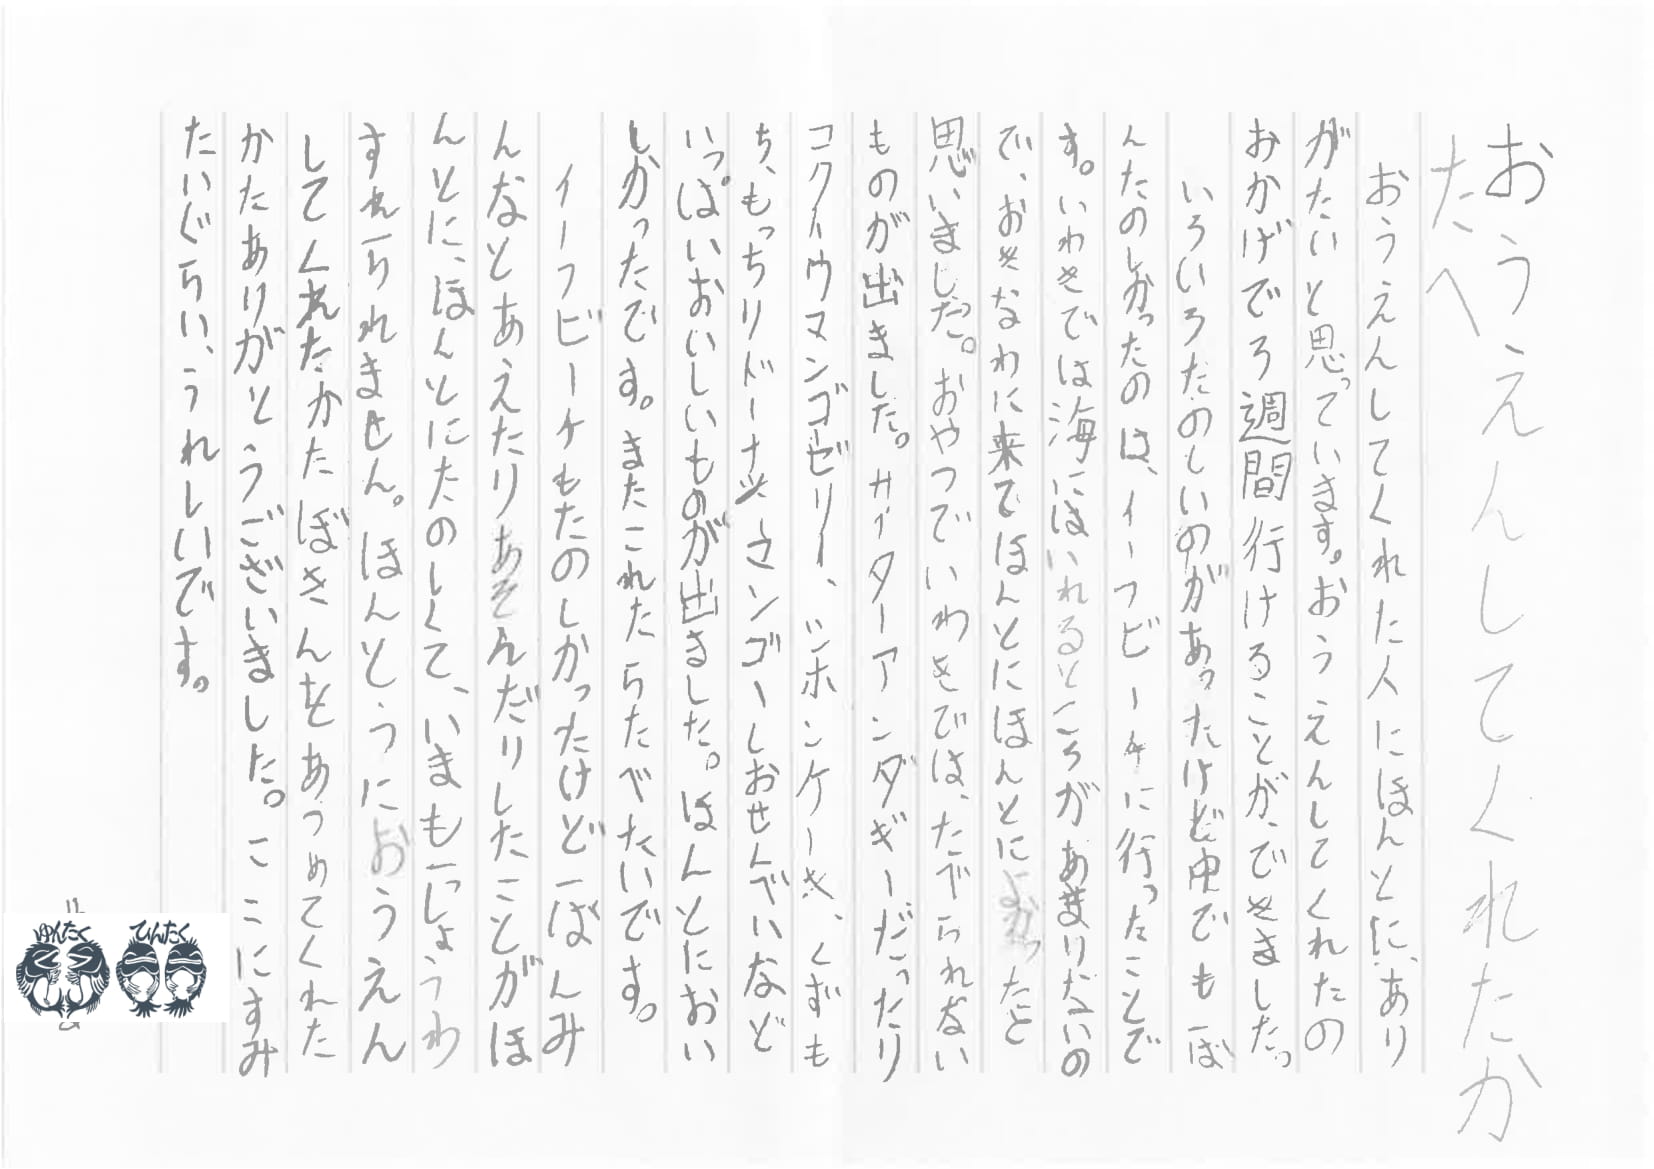 おうえんしてくれたか
たへ
おうえんしてくれた人にほんとに、あり
がたいと思っています。おうえんしてくれたの
おかげでろ週間行けることが、できました。
いろいろたのしいのがあったけど中でも一ば
んたのしかったのは、イーフビーチに行ったことで
す。いわきでは海にはいれるところがあまりないの
で、おきなわに来てほんとにほんとによかったと
思いました。おやつでいわきでは、たべられない
ものが出ました。サーターアンダギーだったり
コクトウマンゴゼリー、シホンケーキ、くずも
ち、もっちりドーナツ、さンゴーしおせんべいなど
いっぱいおいしいものが出ました。ほんとにおい
しかったです。またこれたらたべたいです。
イーフビーチもたのしかったけど一ばんみ
んなとあえたりあそんだりしたことがほ
んとに、ほんとにたのしくて、いまも一しょうわ
すれられません。ほんとうにおうえん
してくれたかたぼきんをあつめてくれた
かたありがとうございました。ここにすみ
たいぐらい、うれしいです。
ゆんたく
ひんたく